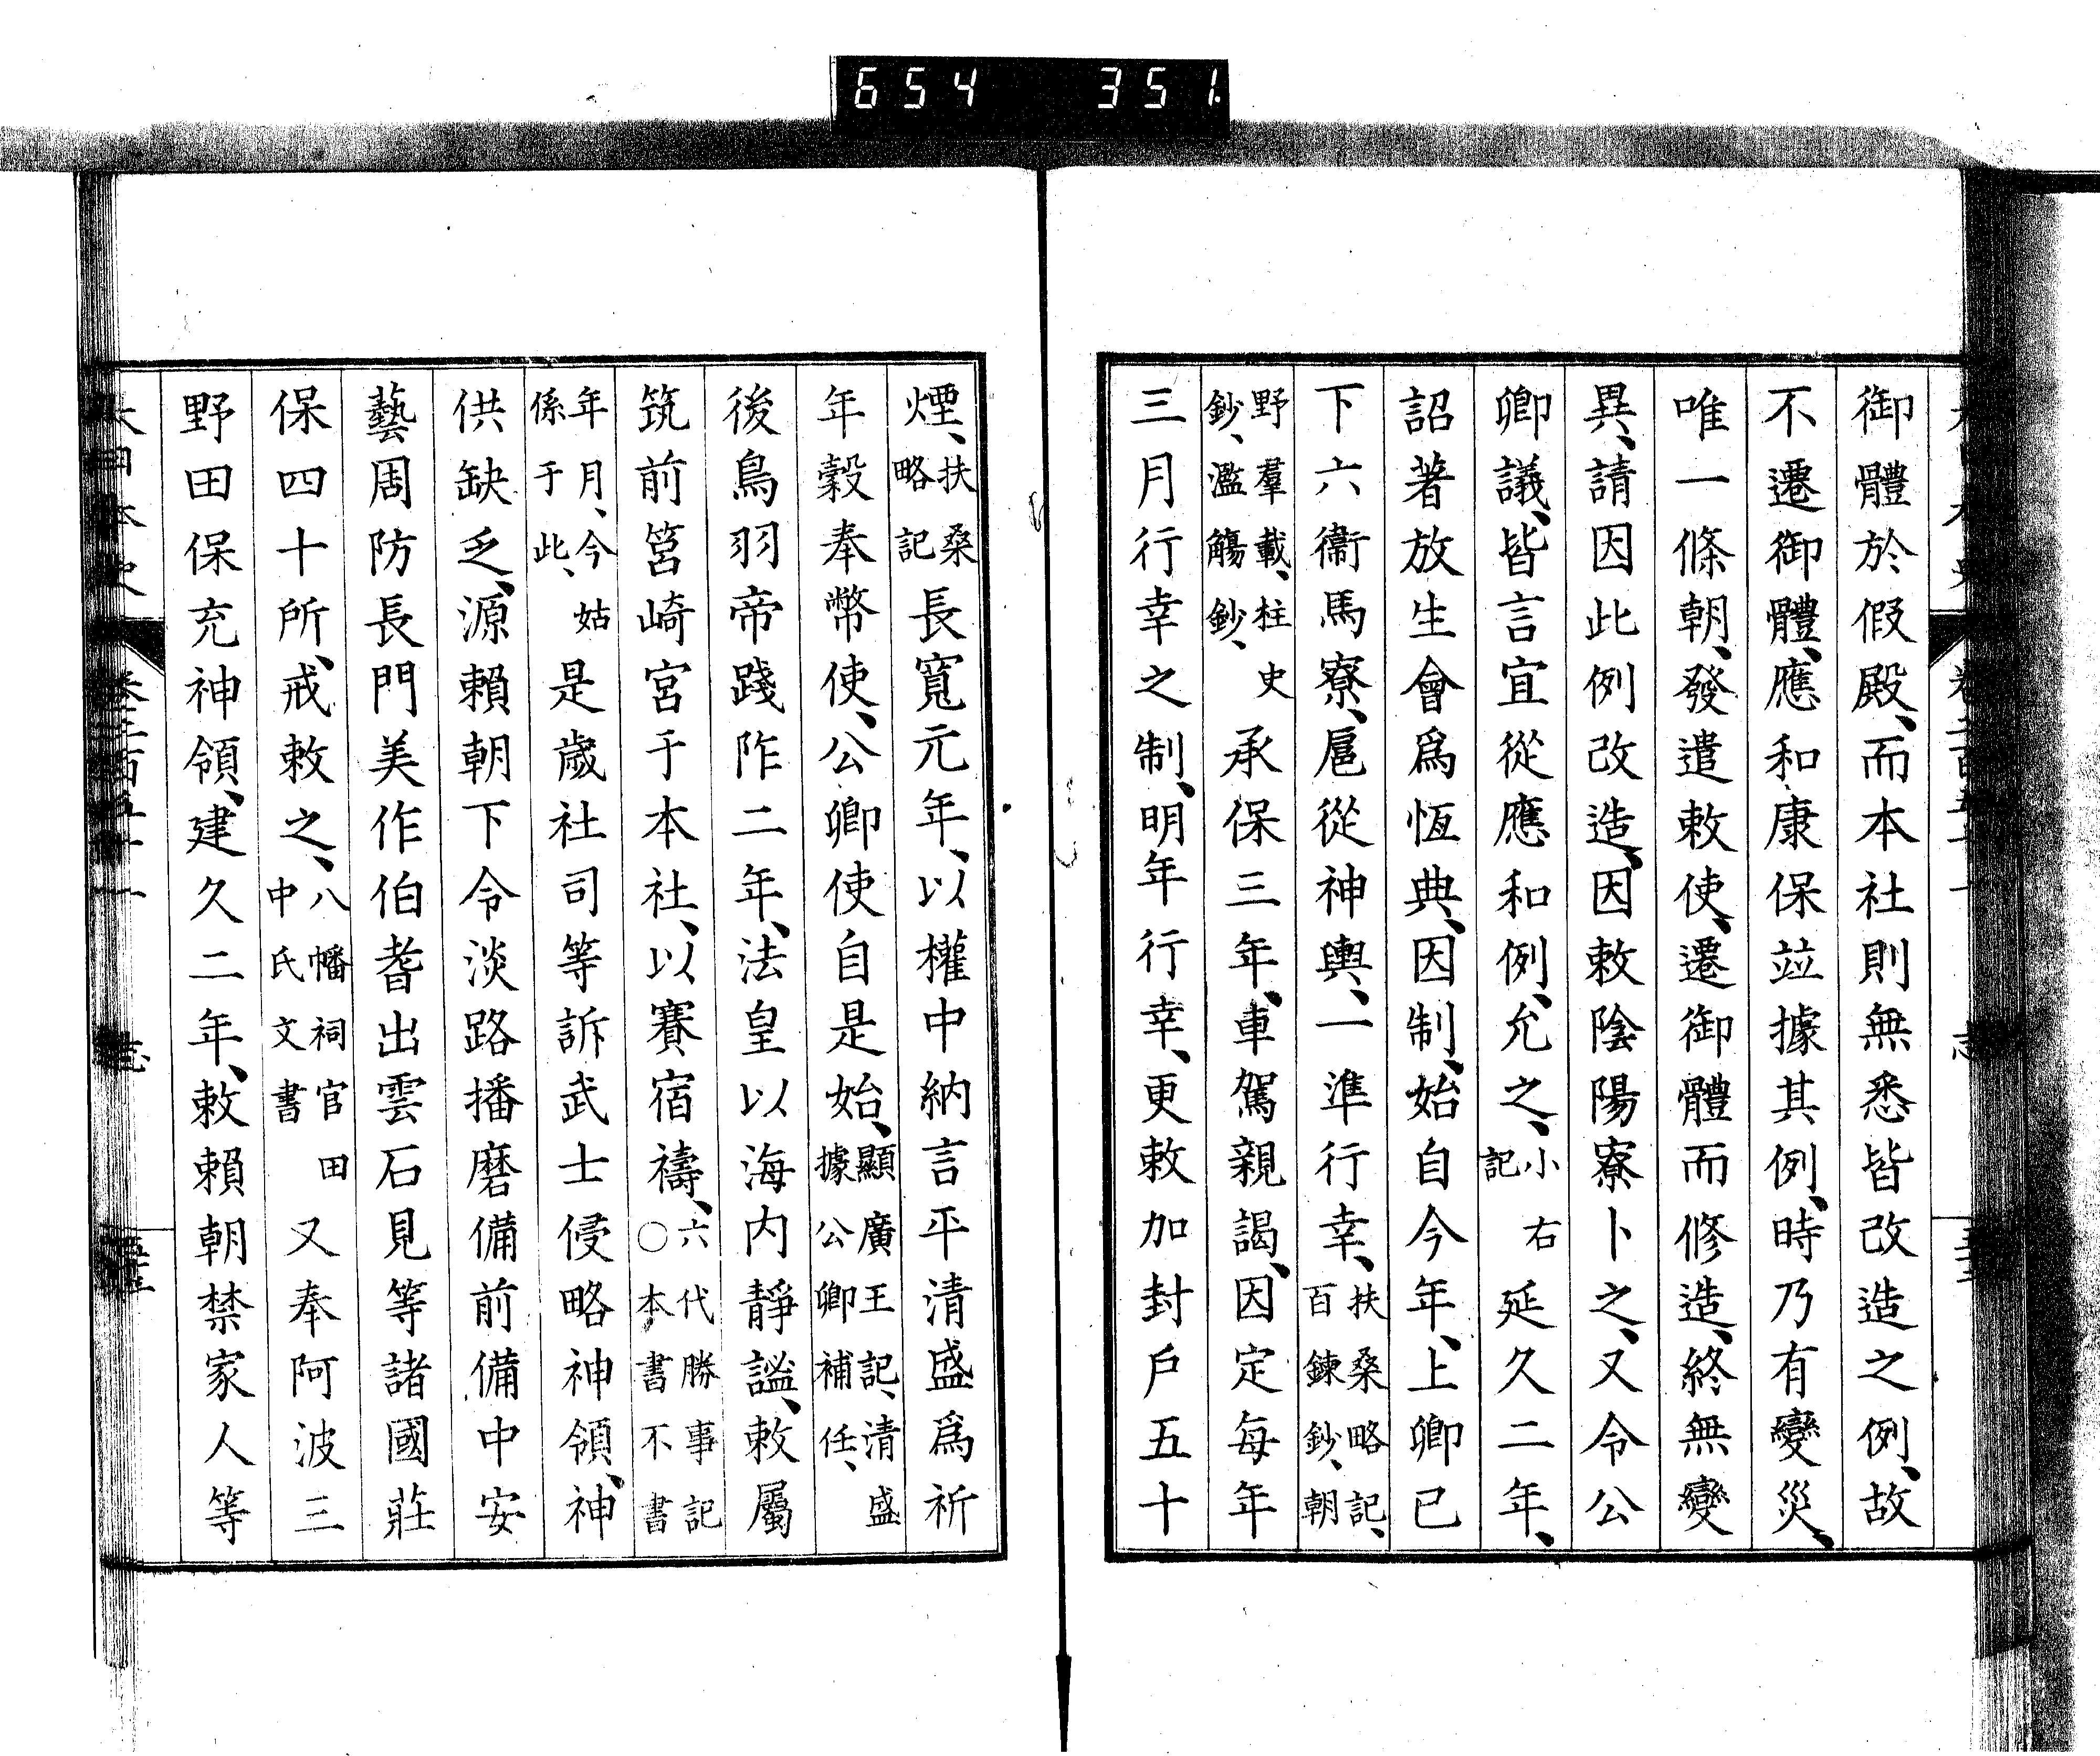 654 351
御體於假殿、而本社則無悉皆改造之例、故
不遷御體、應和康保竝據其例、時乃有變災、
唯一條朝、發遣敕使、遷御體而修造、終無變
異、請因此例改造、因敕陰陽寮卜之、又令公
卿議、皆言宜從應和例、允之、小右記延久二年、
詔著放生會爲恆典、因制、始自今年、上卿已
下六衞馬寮、扈從神輿、一準行幸、扶桑略記、百鍊鈔、朝
野羣載、柱史鈔、濫觴鈔、承保三年、車駕親謁、因定每年
三月行幸之制、明年行幸、更敕加封戶五十
煙、扶桑略記長寬元年、以權中納言平清盛爲祈
年穀奉幣使、公卿使自是始、顯廣王記、清盛據公卿補任、
後鳥羽帝踐阼二年、法皇以海內靜謐、敕屬
筑前筥崎宮于本社、以賽宿禱、六代勝事記〇本書不書
年月、今姑係于此、是歲社司等訴武士侵略神領、神
供缺乏、源賴朝下令淡路播磨備前備中安
藝周防長門美作伯耆出雲石見等諸國莊
保四十所、戒敕之、八幡祠官田中氏文書又奉阿波三
野田保充神領、建久二年、敕賴朝禁家人等
大日本史 卷二百五十一 志